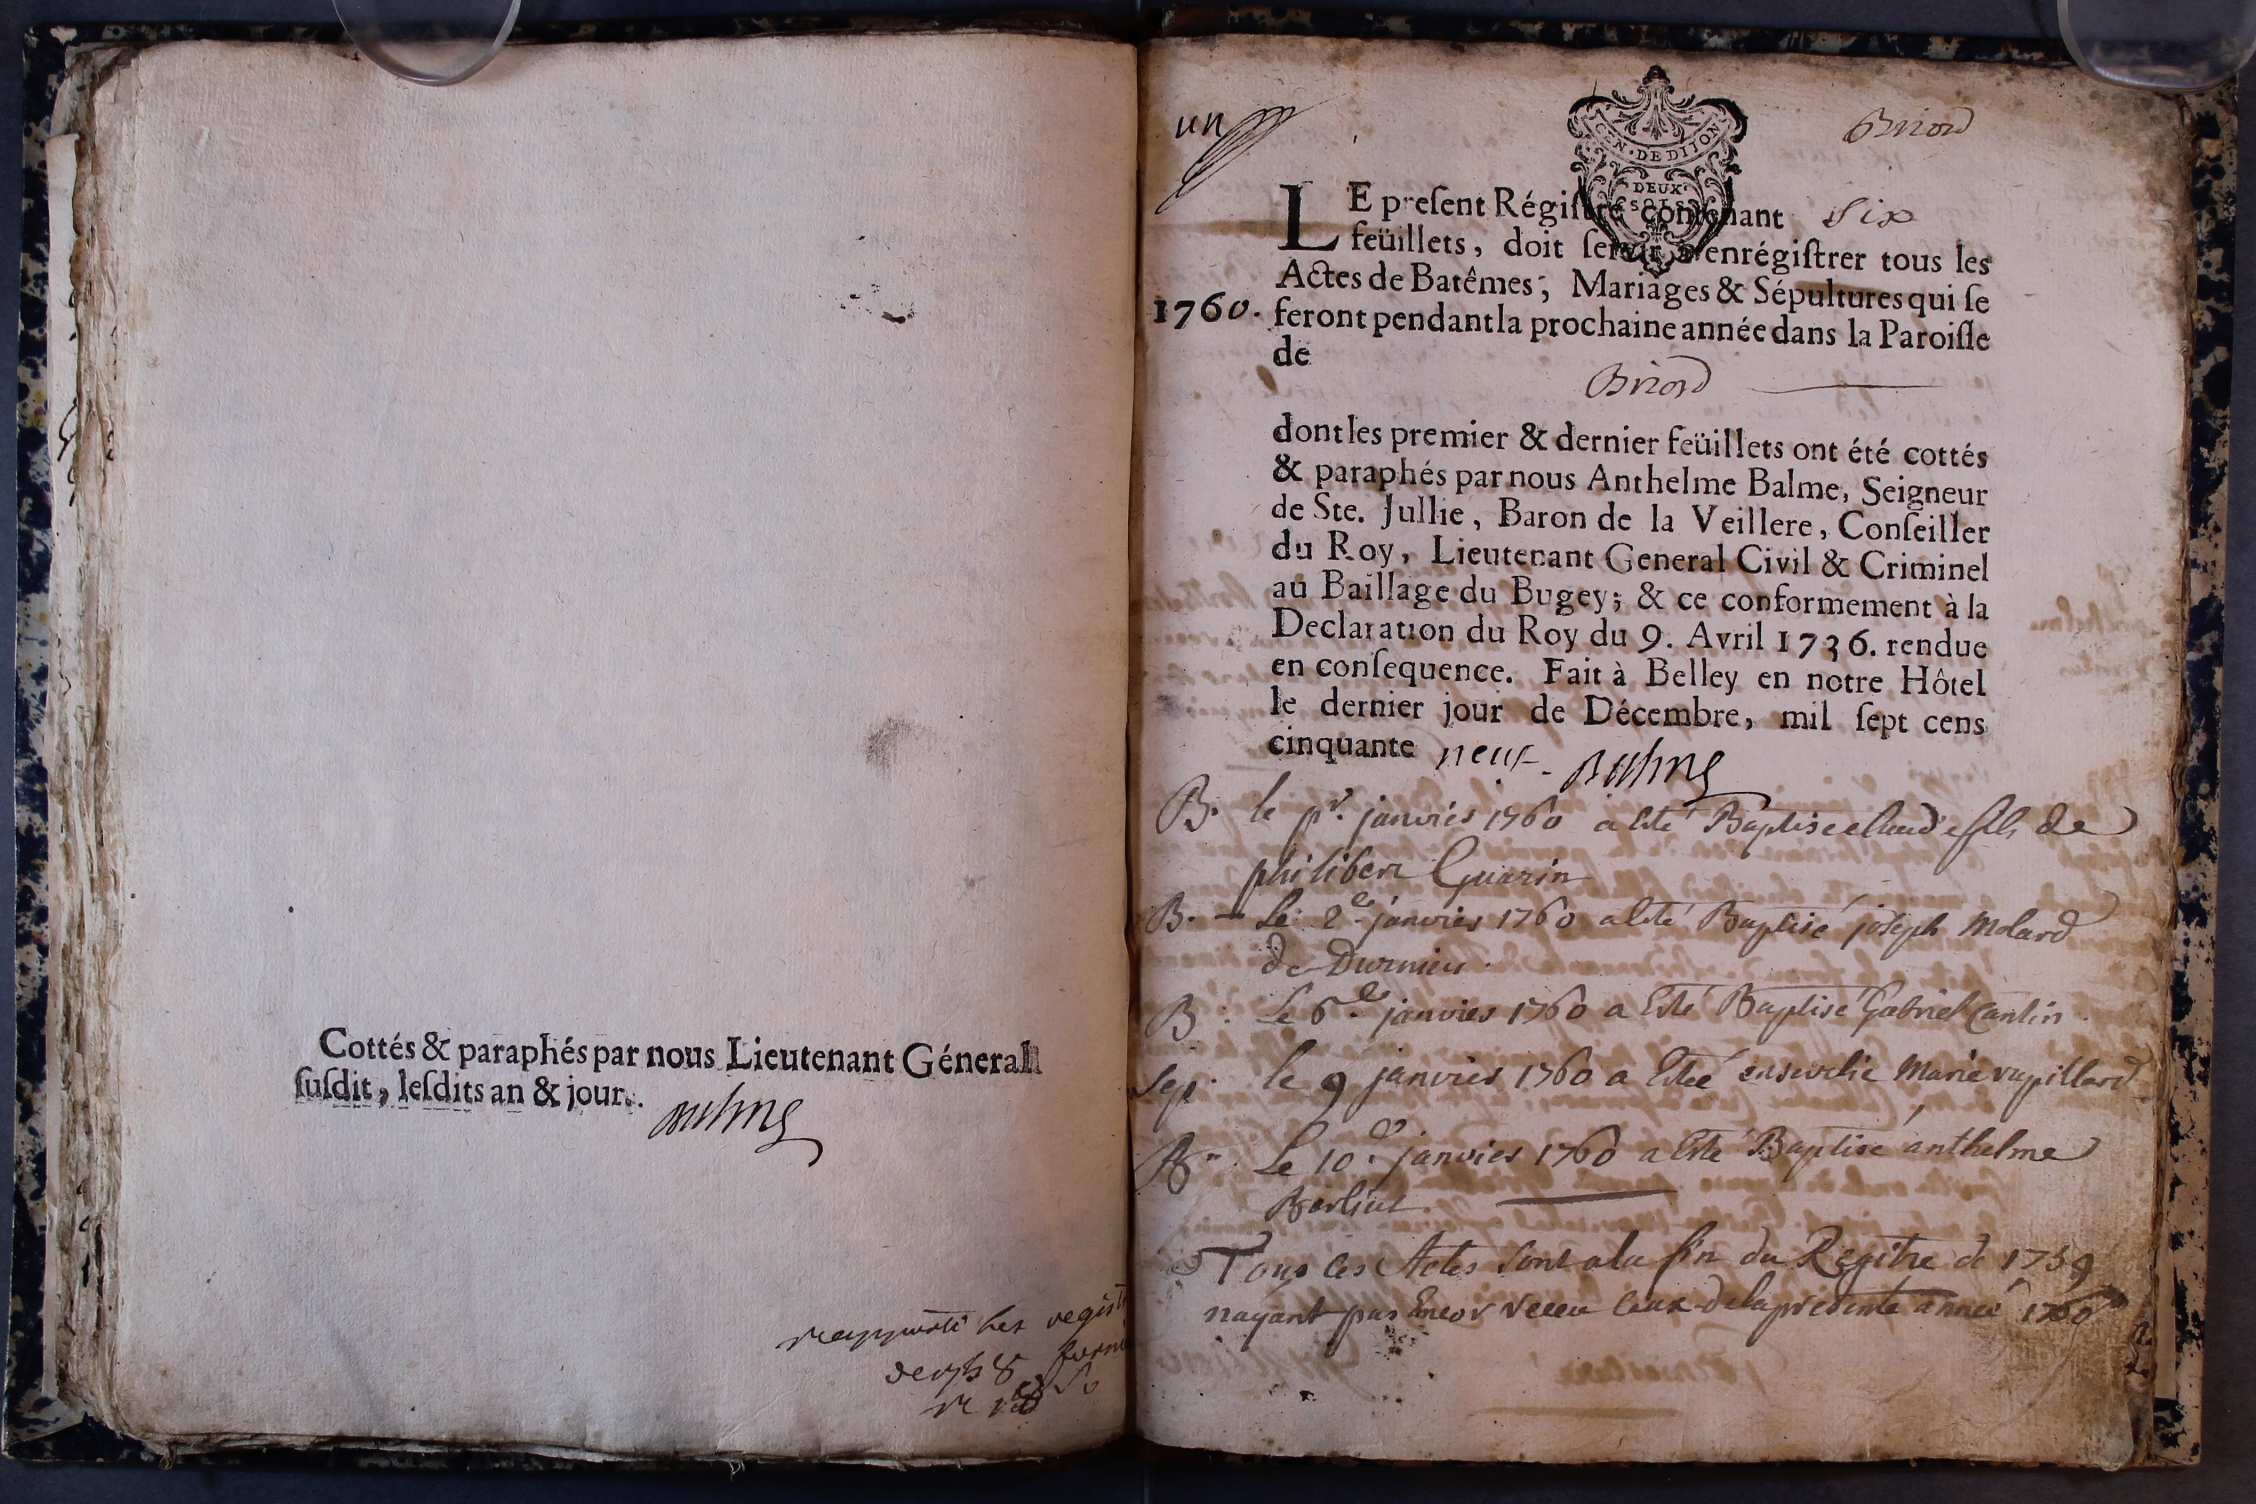 Cottés & paraphés par nous Lieutenant Géneral
ſuſdit, leſdits an & jour.
Balme
de 1758
un
GEN. DE DIJON
DEUX
SOLS
Briord
LE preſent Régiſtre contenant six
feüillets, doit ſervir à enrégiſtrer tous les
Actes de Batêmes, Mariages & Sépultures qui ſe
1760. feront pendant la prochaine année dans la Paroiſſe
de
Briord
dont les premier & dernier feüillets ont été cottés
& paraphés par nous Anthelme Balme, Seigneur
de Ste. Jullie, Baron de la Veillere, Conſeiller
du Roy, Lieutenant General Civil & Criminel
au Baillage du Bugey; & ce conformement à la
Declaration du Roy du 9. Avril 1736. rendue
en conſequence. Fait à Belley en notre Hôtel
le dernier jour de Décembre, mil ſept cens
cinquante neuf. Balme
B. le pr. janvier 1760 a esté Baptise claude fils de
philibert Guarin
B. - Le 2e janvier 1760 a esté Baptisé joseph Molard
de Durnieu.
B. Le 6e janvier 1760 a Esté Baptisé Gabriel Cantin.
Sep. le 9 janvier 1760 a Esteé ensevelie Marie vupillard
B. Le 10e janvier 1760 a Esté Baptisé anthelme
Berliat.
Tous ces Actes sont a la fin du Regitre de 1759
nayant pas Encor receu ceux de la presente année 1760